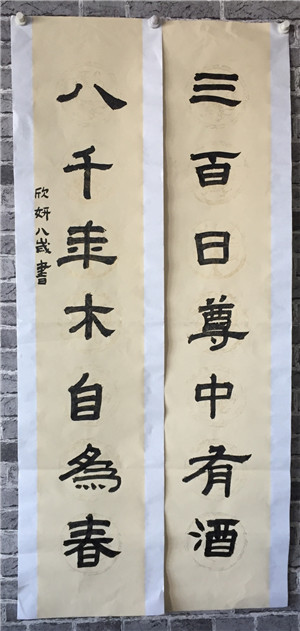 三百日尊中有酒
八千年木自為春
欣妍八歲書